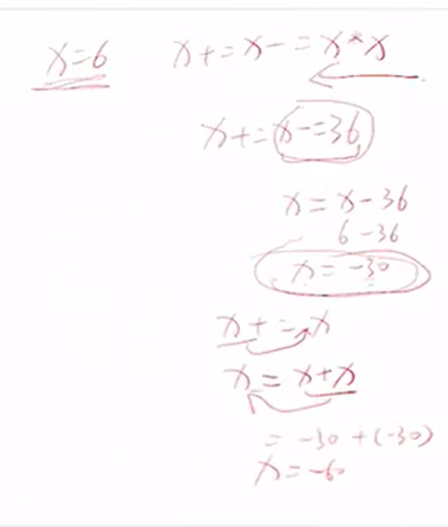 x=6 x+=x-=x*x
x+=x-=36
x=x-36
6-36
x=-30
x+=x
x=x+x
=-30+(-30)
x=-60